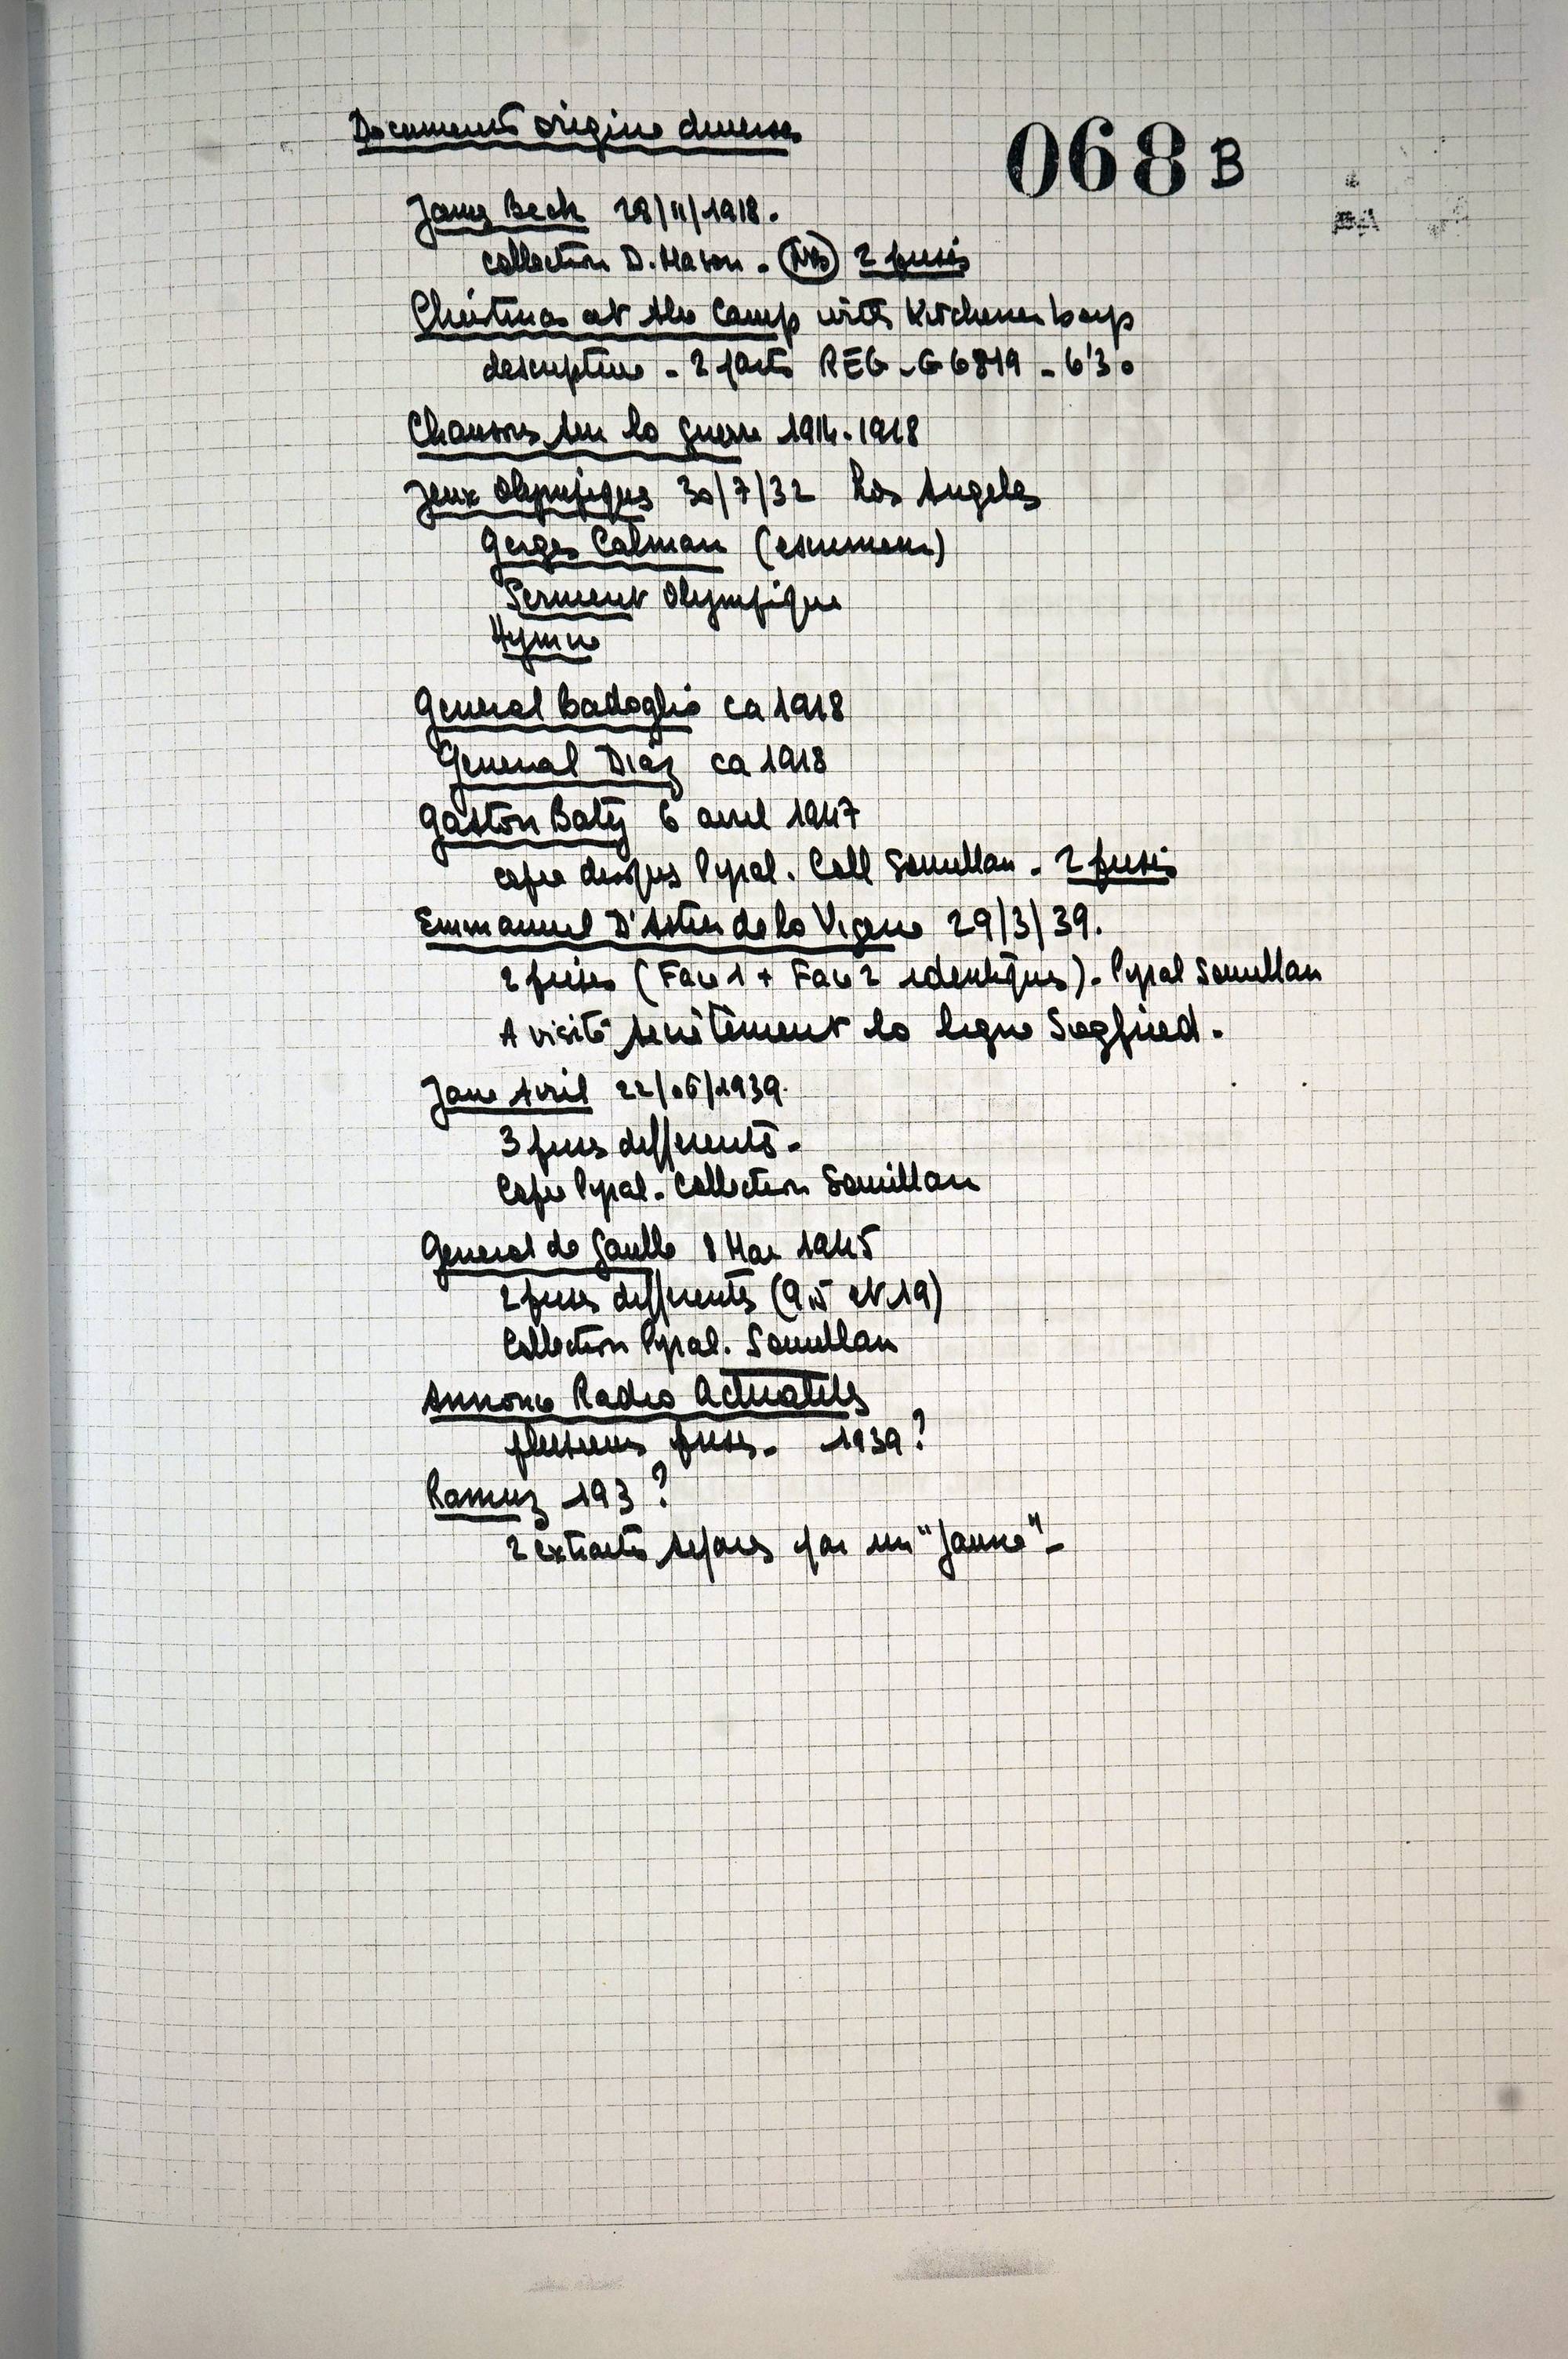 Documents origine diverses
068 B
James Beck 28/11/1918.
collection D. Mason. 2 prises
Christmas at the Camp with Kitcheners boys
descriptive - 2 parts REG-G 6819 - 6'30
Chansons sur la guerre 1914.1918
Jeux Olympiques 30/7/32 Los Angeles
Georges Calman (escrimeur)
Serment Olympique
Hymne
General Badoglio ca 1918
General Diaz ca 1918
Gaston Baty 6 avril 1947
copie disques Pyral. Coll - 2 prises
Emmanuel D'Astier de la Vigerie 29/3/39.
2 prises (Face 1 + Face 2 identiques). Pyral
A visité secrètement la ligne Siegfried.
Jane Avril 22/05/1939.
3 prises différentes.
Copie Pyral. Collection
General de Gaulle 8 Mai 1945
2 prises différentes (et 19)
Collection Pyral.
Annonce Radio Actualités
plusieurs prises. 1939?
Ramuz 193?
2 extraits séparés par un "Jaune"-